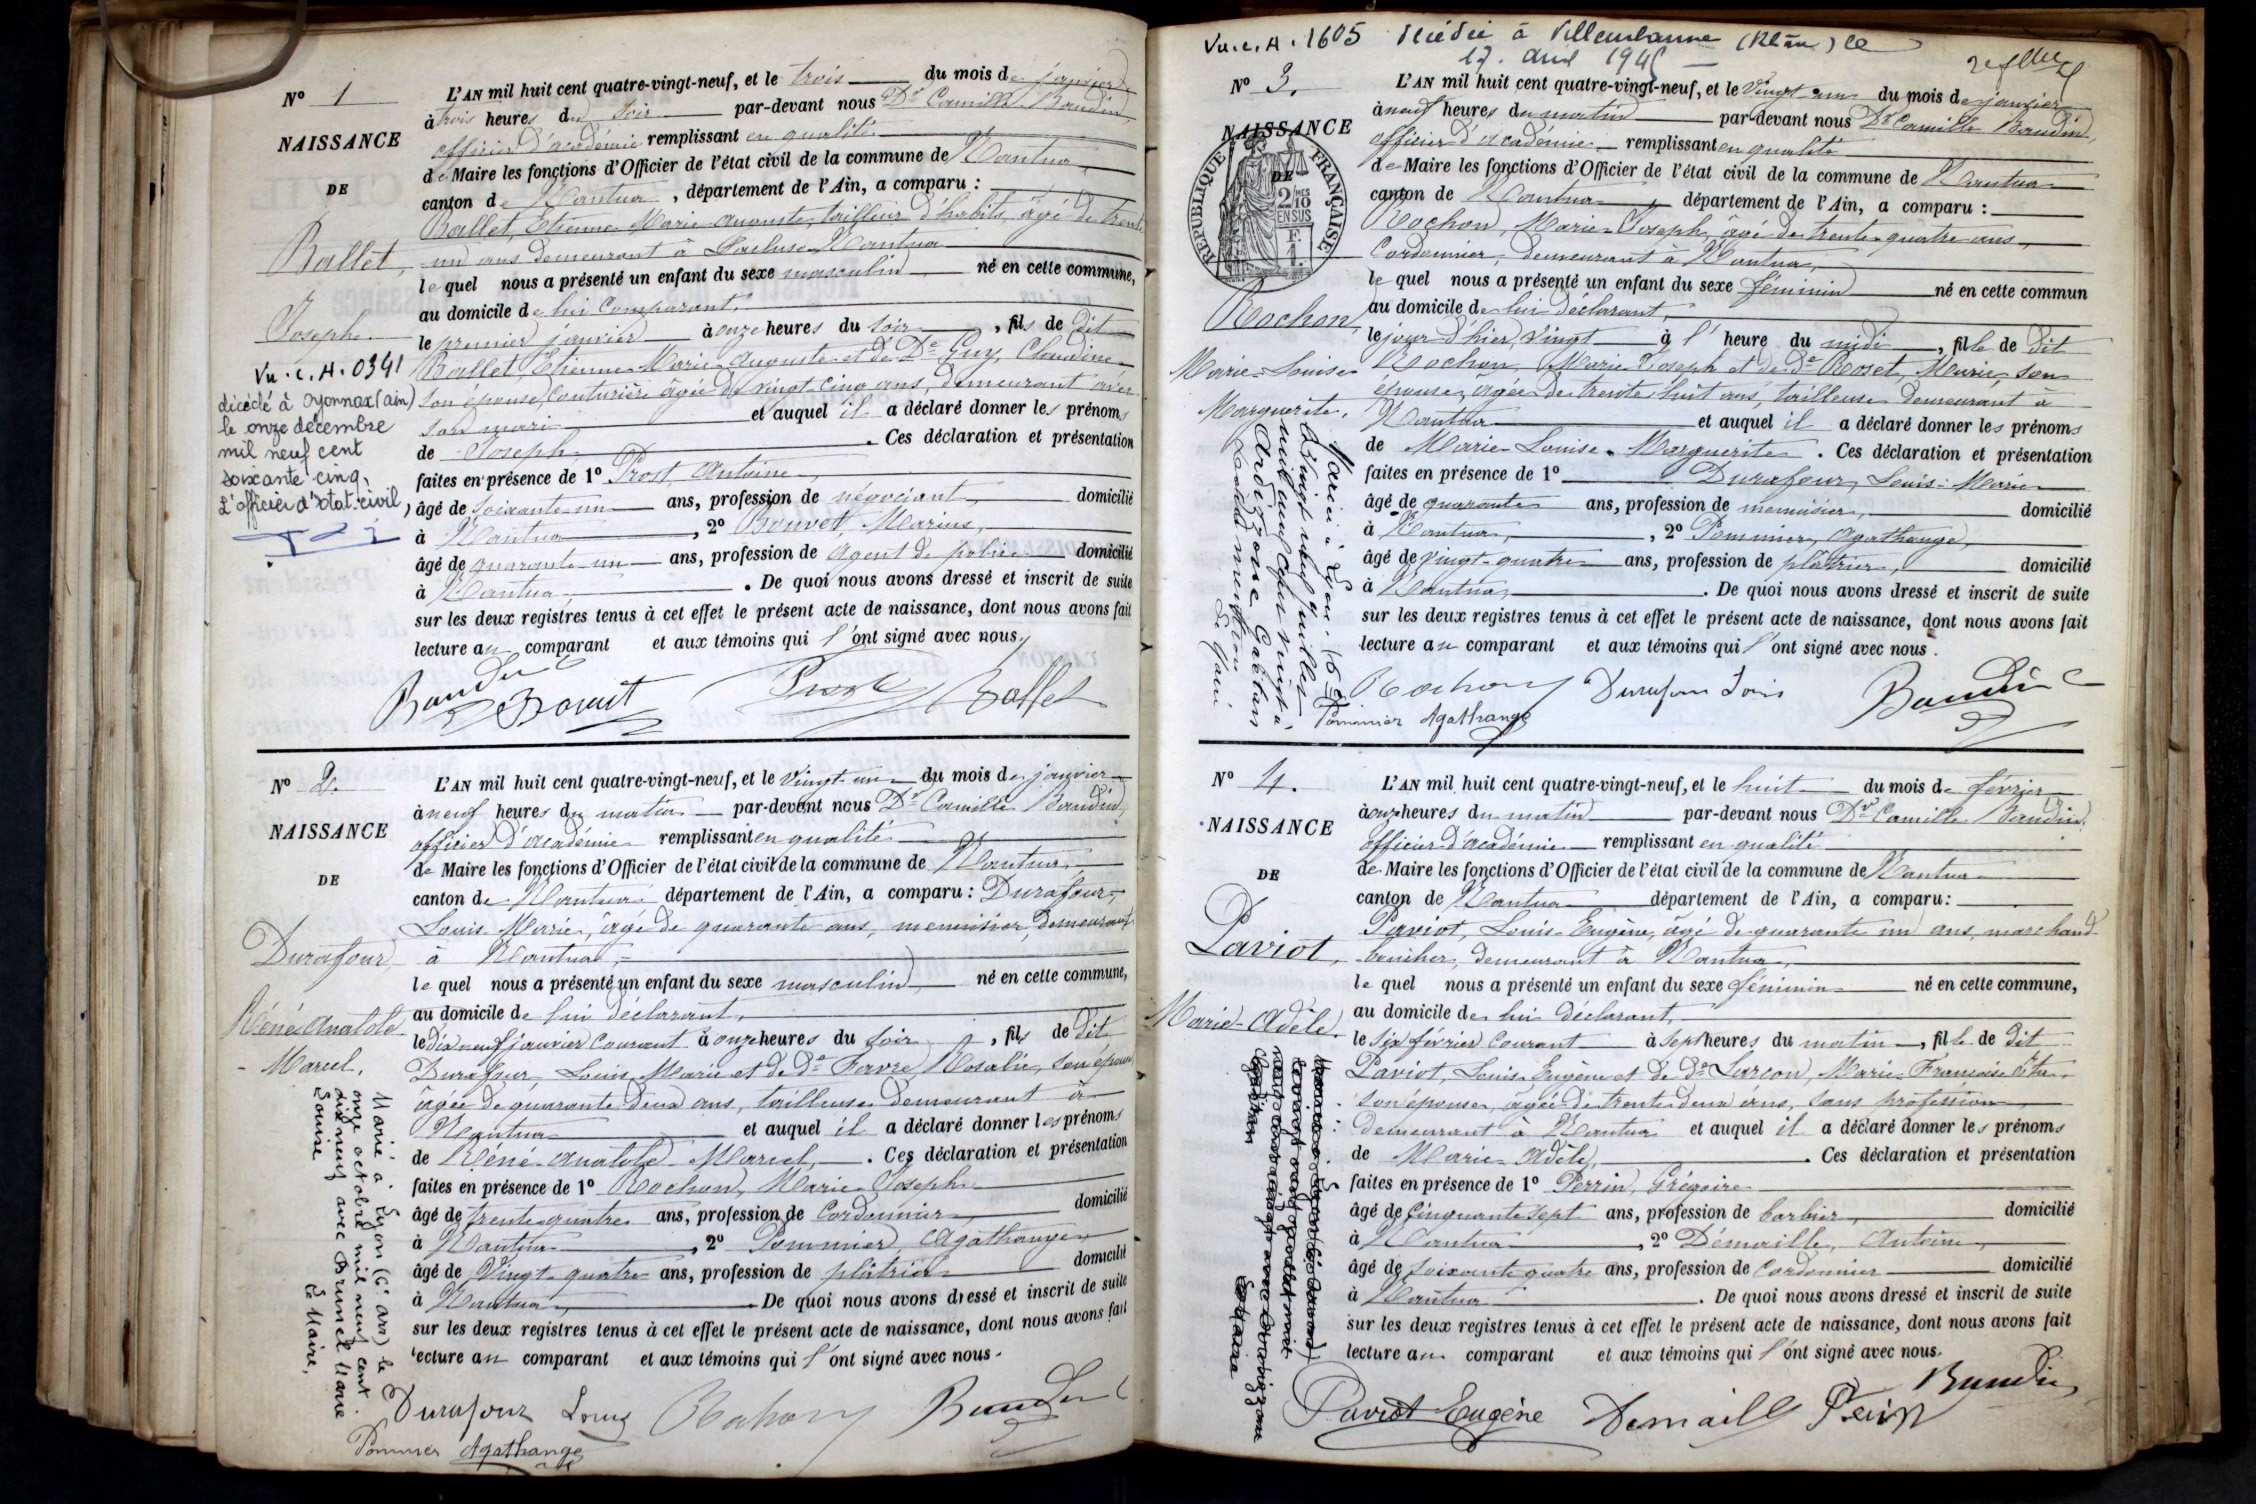 Nº 1
NAISSANCE
DE
Ballet,
Joseph
Vu. c. A. 0341
décédé à Oyonnax (ain)
le onze décembre
mil neuf cent
soixante cinq,
L'officier d'état-civil,
L'AN mil huit cent quatre-vingt-neuf, et le trois du mois de janvier
à trois heures du soir par-devant nous Dr Camille Baudin,
officier d'académie remplissant en qualité
de Maire les fonctions d'Officier de l'état civil de la commune de Nantua,
canton de Nantua, département de l'Ain, a comparu :
Ballet, Etienne Marie Auguste, tailleur d'habits, âgé de trente
un ans demeurant à Nantua
lequel nous a présenté un enfant du sexe masculin né en cette commune,
au domicile de lui comparant,
le premier janvier à onze heures du soir, fils de dit
Ballet, Etienne Marie Auguste et de De Guy, Claudine
son épouse, couturière âgée de vingt-cinq ans, demeurant avec
son mari et auquel il a déclaré donner les prénoms
de Joseph. Ces déclaration et présentation
faites en présence de 1º Prost, Antoine,
âgé de soixante-un ans, profession de négociant, domicilié
à Nantua, 2º Bouvet, Marius,
âgé de quarante-un ans, profession de agent de police domicilié
à Nantua. De quoi nous avons dressé et inscrit de suite
sur les deux registres tenus à cet effet le présent acte de naissance, dont nous avons fait
lecture au comparant et aux témoins qui l'ont signé avec nous,
Baudin Bouvet Prost Ballet
Nº 2.
NAISSANCE
DE
Durafour,
Réné Anatole
Marcel,
Marié à Lyon (6e arr) le
onze octobre mil neuf cent
dix neuf avec Brunel Marie
Louise
Le Maire,
L'AN mil huit cent quatre-vingt-neuf, et le vingt-un du mois de janvier
à neuf heures du matin par-devant nous Dr Camille Baudin,
officier d'académie remplissant en qualité
de Maire les fonctions d'Officier de l'état civil de la commune de Nantua,
canton de Nantua département de l'Ain, a comparu : Durafour,
Louis Marie, âgé de quarante ans, menuisier, demeurant
à Nantua,
lequel nous a présenté un enfant du sexe masculin né en cette commune,
au domicile de lui déclarant,
le dix neuf janvier courant à onze heures du soir, fils de dit
Durafour, Louis Marie et de De Favre, Rosalie, son épouse
âgée de quarante-deux ans, tailleuse demeurant à
Nantua et auquel il a déclaré donner les prénoms
de Réné Anatole Marcel,. Ces déclaration et présentation
faites en présence de 1º Rochon, Marie Joseph
âgé de trente-quatre ans, profession de cordonnier, domicilié
à Nantua, 2º Pommier, Agathange
âgé de vingt-quatre ans, profession de plâtrier domicilié
à Nantua,. De quoi nous avons dressé et inscrit de suite
sur les deux registres tenus à cet effet le présent acte de naissance, dont nous avons fait
lecture au comparant et aux témoins qui l'ont signé avec nous.
Durafour Louis Rochon Baudin
Pommier Agathange
Vu. c. A. 1605 décédée à Villeurbanne (Rhône) le
17 avril 1945
Nº 3.
NAISSANCE
DE
RÉPUBLIQUE FRANÇAISE
2/10
EN SUS
F.
1.
Rochon,
Marie-Louise
Marguerite,
Mariée à Lyon (6e
vingt neuf juillet
mil neuf cent vingt à
Ardizzone Gaëtan
mention
Le Maire
L'AN mil huit cent quatre-vingt-neuf, et le vingt-un du mois de janvier
à neuf heures du matin par-devant nous Dr Camille Baudin,
officier d'académie remplissant en qualité
de Maire les fonctions d'Officier de l'état civil de la commune de Nantua
canton de Nantua, département de l'Ain, a comparu :
Rochon, Marie-Joseph, âgé de trente-quatre ans,
cordonnier, demeurant à Nantua,
lequel nous a présenté un enfant du sexe féminin né en cette commun
au domicile de lui déclarant,
le jour d'hier, vingt à l'heure du midi, fille de dit
Rochon, Marie Joseph et de De Roset, Marie, son
épouse, âgée de trente-huit ans, tailleuse demeurant à
Nantua et auquel il a déclaré donner les prénoms
de Marie-Louise-Marguerite. Ces déclaration et présentation
faites en présence de 1º Durafour, Louis-Marie
âgé de quarante ans, profession de menuisier, domicilié
à Nantua,, 2º Pommier, Agathange,
âgé de vingt-quatre ans, profession de plâtrier, domicilié
à Nantua,. De quoi nous avons dressé et inscrit de suite
sur les deux registres tenus à cet effet le présent acte de naissance, dont nous avons fait
lecture au comparant et aux témoins qui l'ont signé avec nous.
Rochon Durafour Louis Baudin
Pommier Agathange
Nº 4.
NAISSANCE
DE
Paviot,
Marie-Adèle
L'AN mil huit cent quatre-vingt-neuf, et le huit du mois de février
à onze heures du matin par-devant nous Dr Camille Baudin,
officier d'académie remplissant en qualité
de Maire les fonctions d'Officier de l'état civil de la commune de Nantua
canton de Nantua département de l'Ain, a comparu :
Paviot, Louis-Eugène, âgé de quarante un ans, marchand
boucher, demeurant à Nantua,
lequel nous a présenté un enfant du sexe féminin né en cette commune,
au domicile de lui déclarant,
le six février courant à sept heures du matin, fille de dit
Paviot, Louis Eugène et de De Larçon, Marie Françoise
son épouse, âgée de trente-deux ans, sans profession
demeurant à Nantua et auquel il a déclaré donner les prénoms
de Marie-Adèle,. Ces déclaration et présentation
faites en présence de 1º Perrin, Grégoire
âgé de cinquante sept ans, profession de barbier, domicilié
à Nantua, 2º Démaille, Antoine,
âgé de soixante quatre ans, profession de cordonnier domicilié
à Nantua. De quoi nous avons dressé et inscrit de suite
sur les deux registres tenus à cet effet le présent acte de naissance, dont nous avons fait
lecture au comparant et aux témoins qui l'ont signé avec nous.
Paviot Eugène Demaille Perrin Baudin